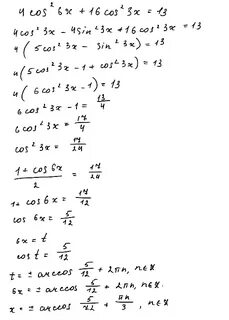 4cos²6x + 16cos²3x = 13
4cos²3x - 4sin²3x + 16cos²3x = 13
4(5cos²3x - sin²3x) = 13
4(5cos²3x - 1 + cos²3x) = 13
4(6cos²3x - 1) = 13
6cos²3x - 1 = 13/4
6cos²3x = 17/4
cos²3x = 17/24
(1 + cos6x)/2 = 17/24
1 + cos6x = 17/12
cos6x = 5/12
6x = t
cos t = 5/12
t = ± arccos 5/12 + 2πn, n∈ℤ
6x = ± arccos 5/12 + 2πn, n∈ℤ.
x = ± arccos 5/72 + πn/3, n∈ℤ